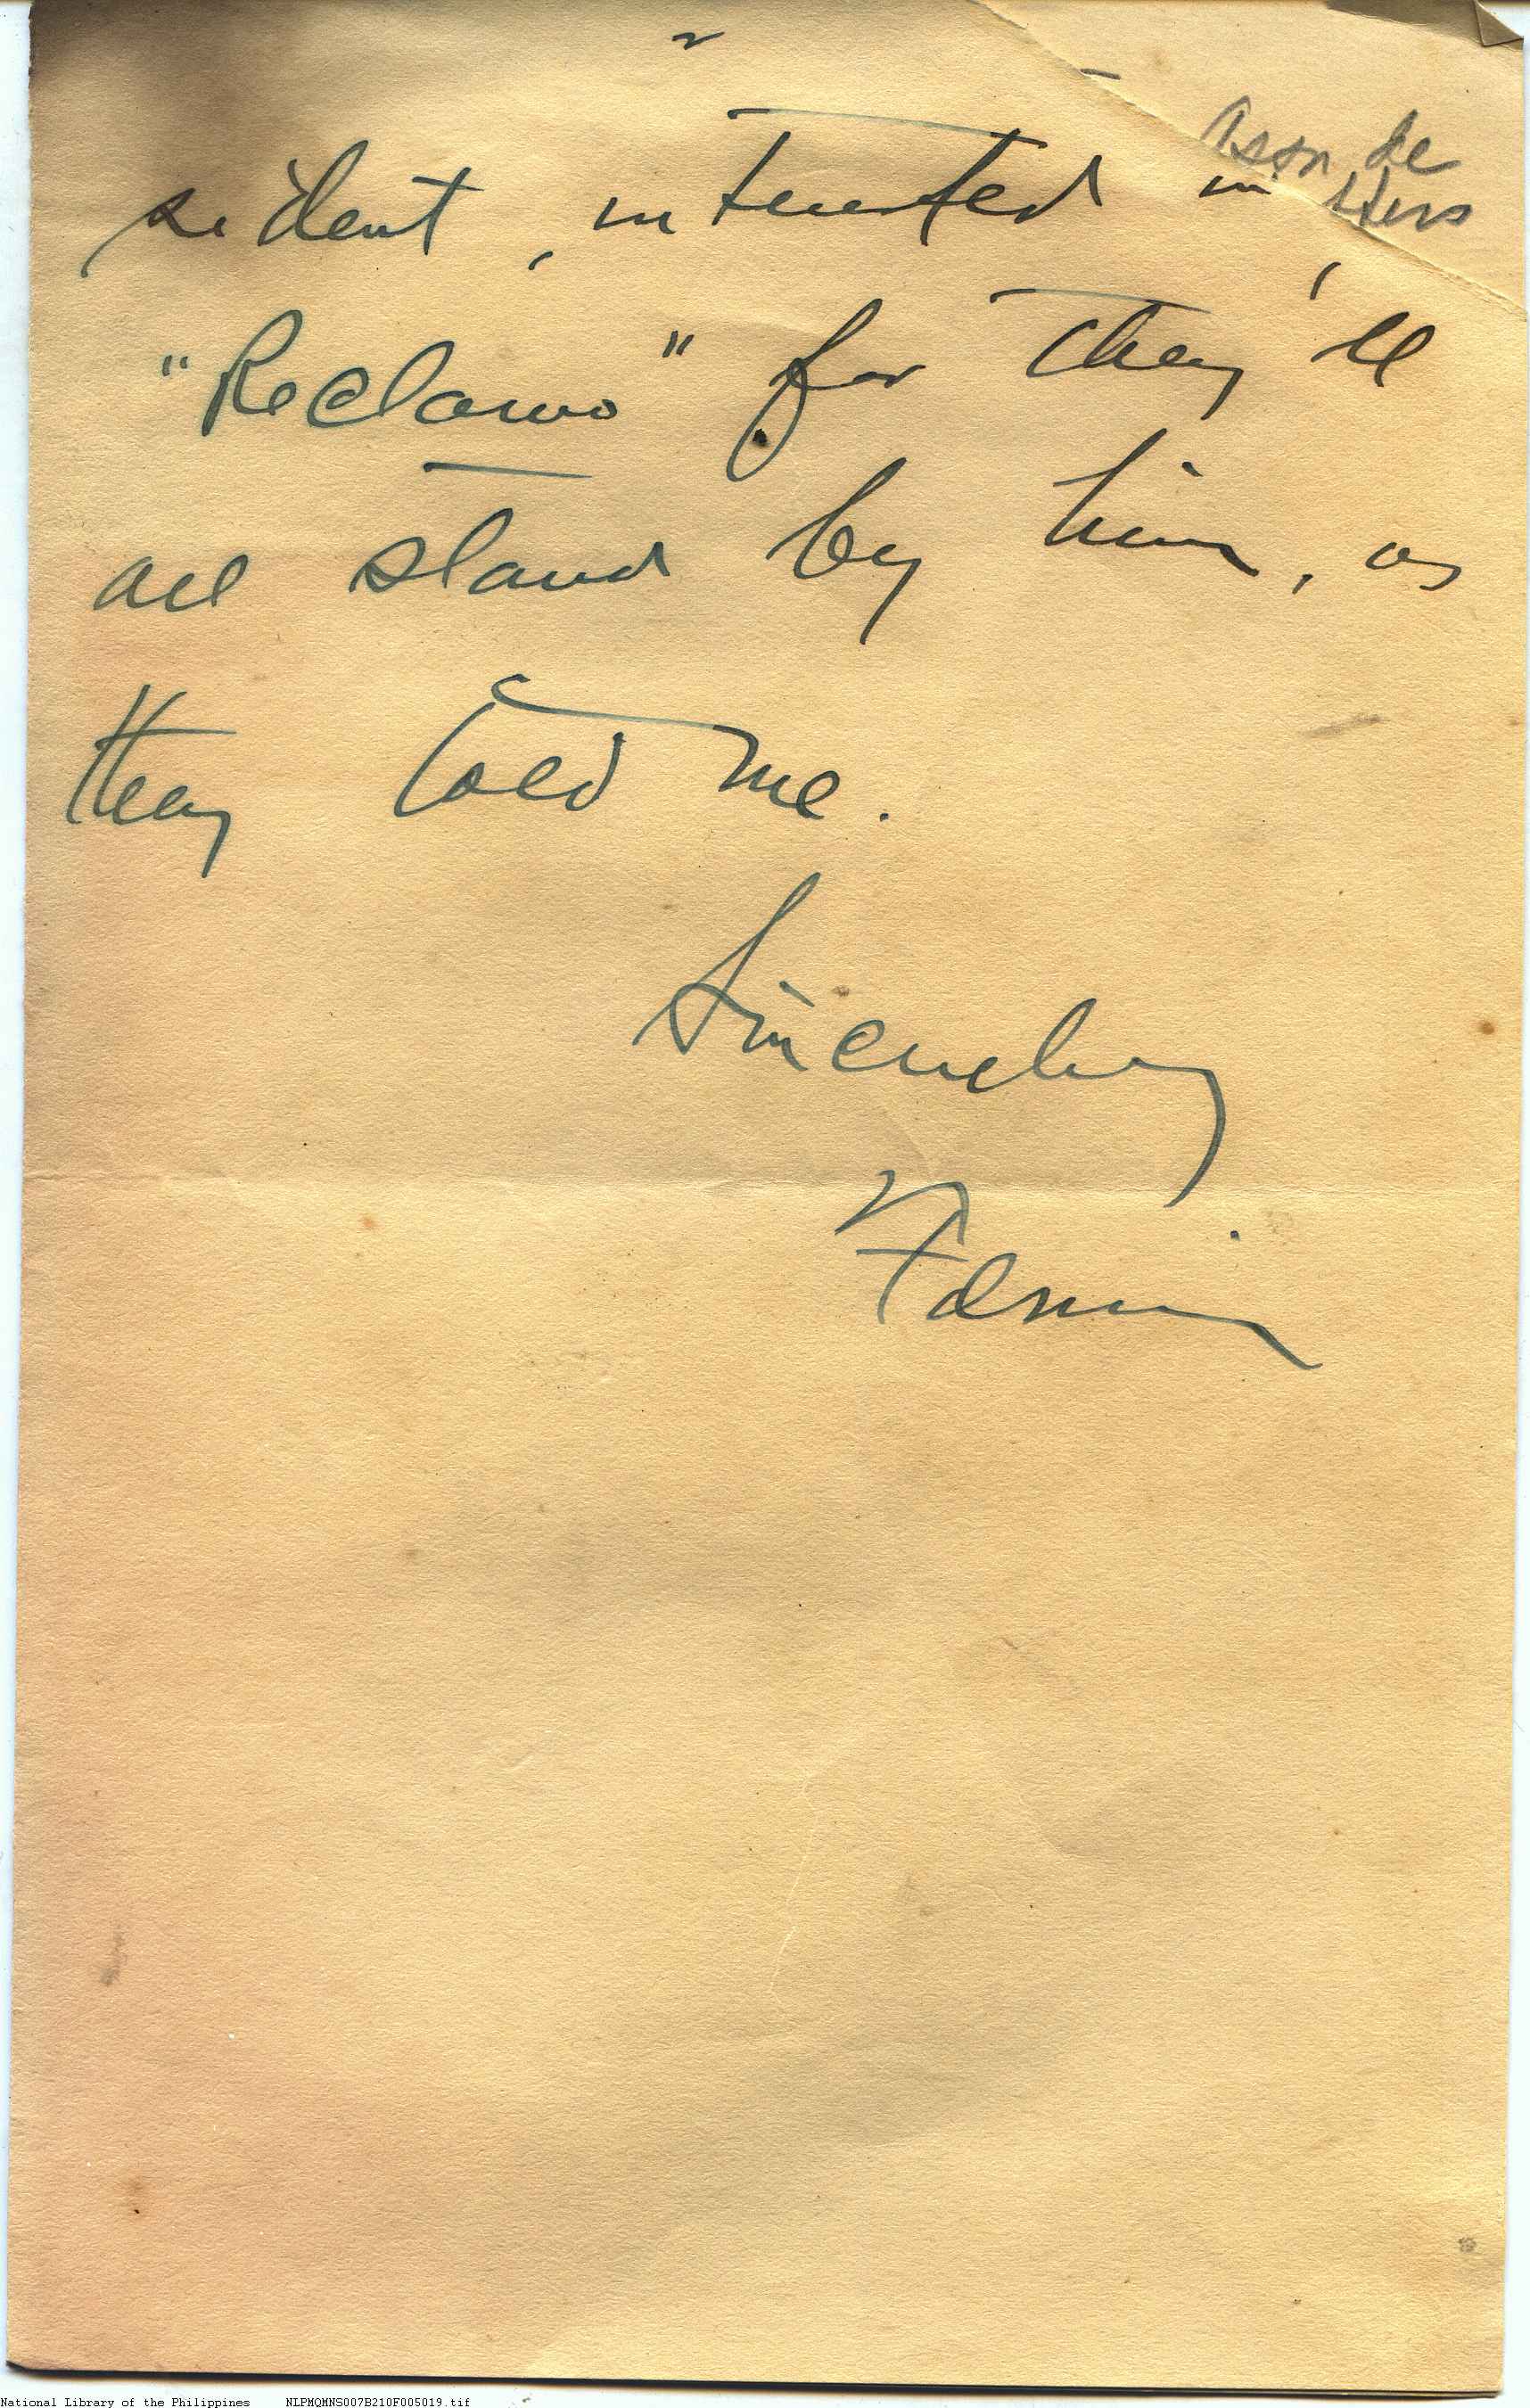 Assn de
sident, interested in
"Reclamo" for they'll
all stand by him, as
they told me.
Sincerely
National Library of the Philippines NLPMQMNS007B210F005019.tif